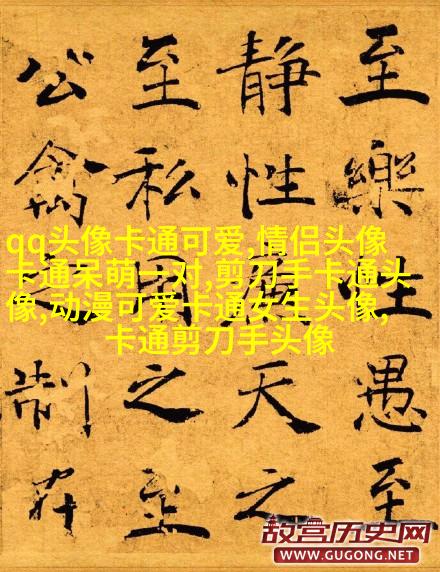 至樂性愚至
静性廉天之
至私用之至
公禽之制在
qq头像卡通可爱,情侣头像
卡通呆萌一对,剪刀手卡通头
像,动漫可爱卡通女生头像,
卡通剪刀手头像
故宫历史网
WWW.GUGONG.NET